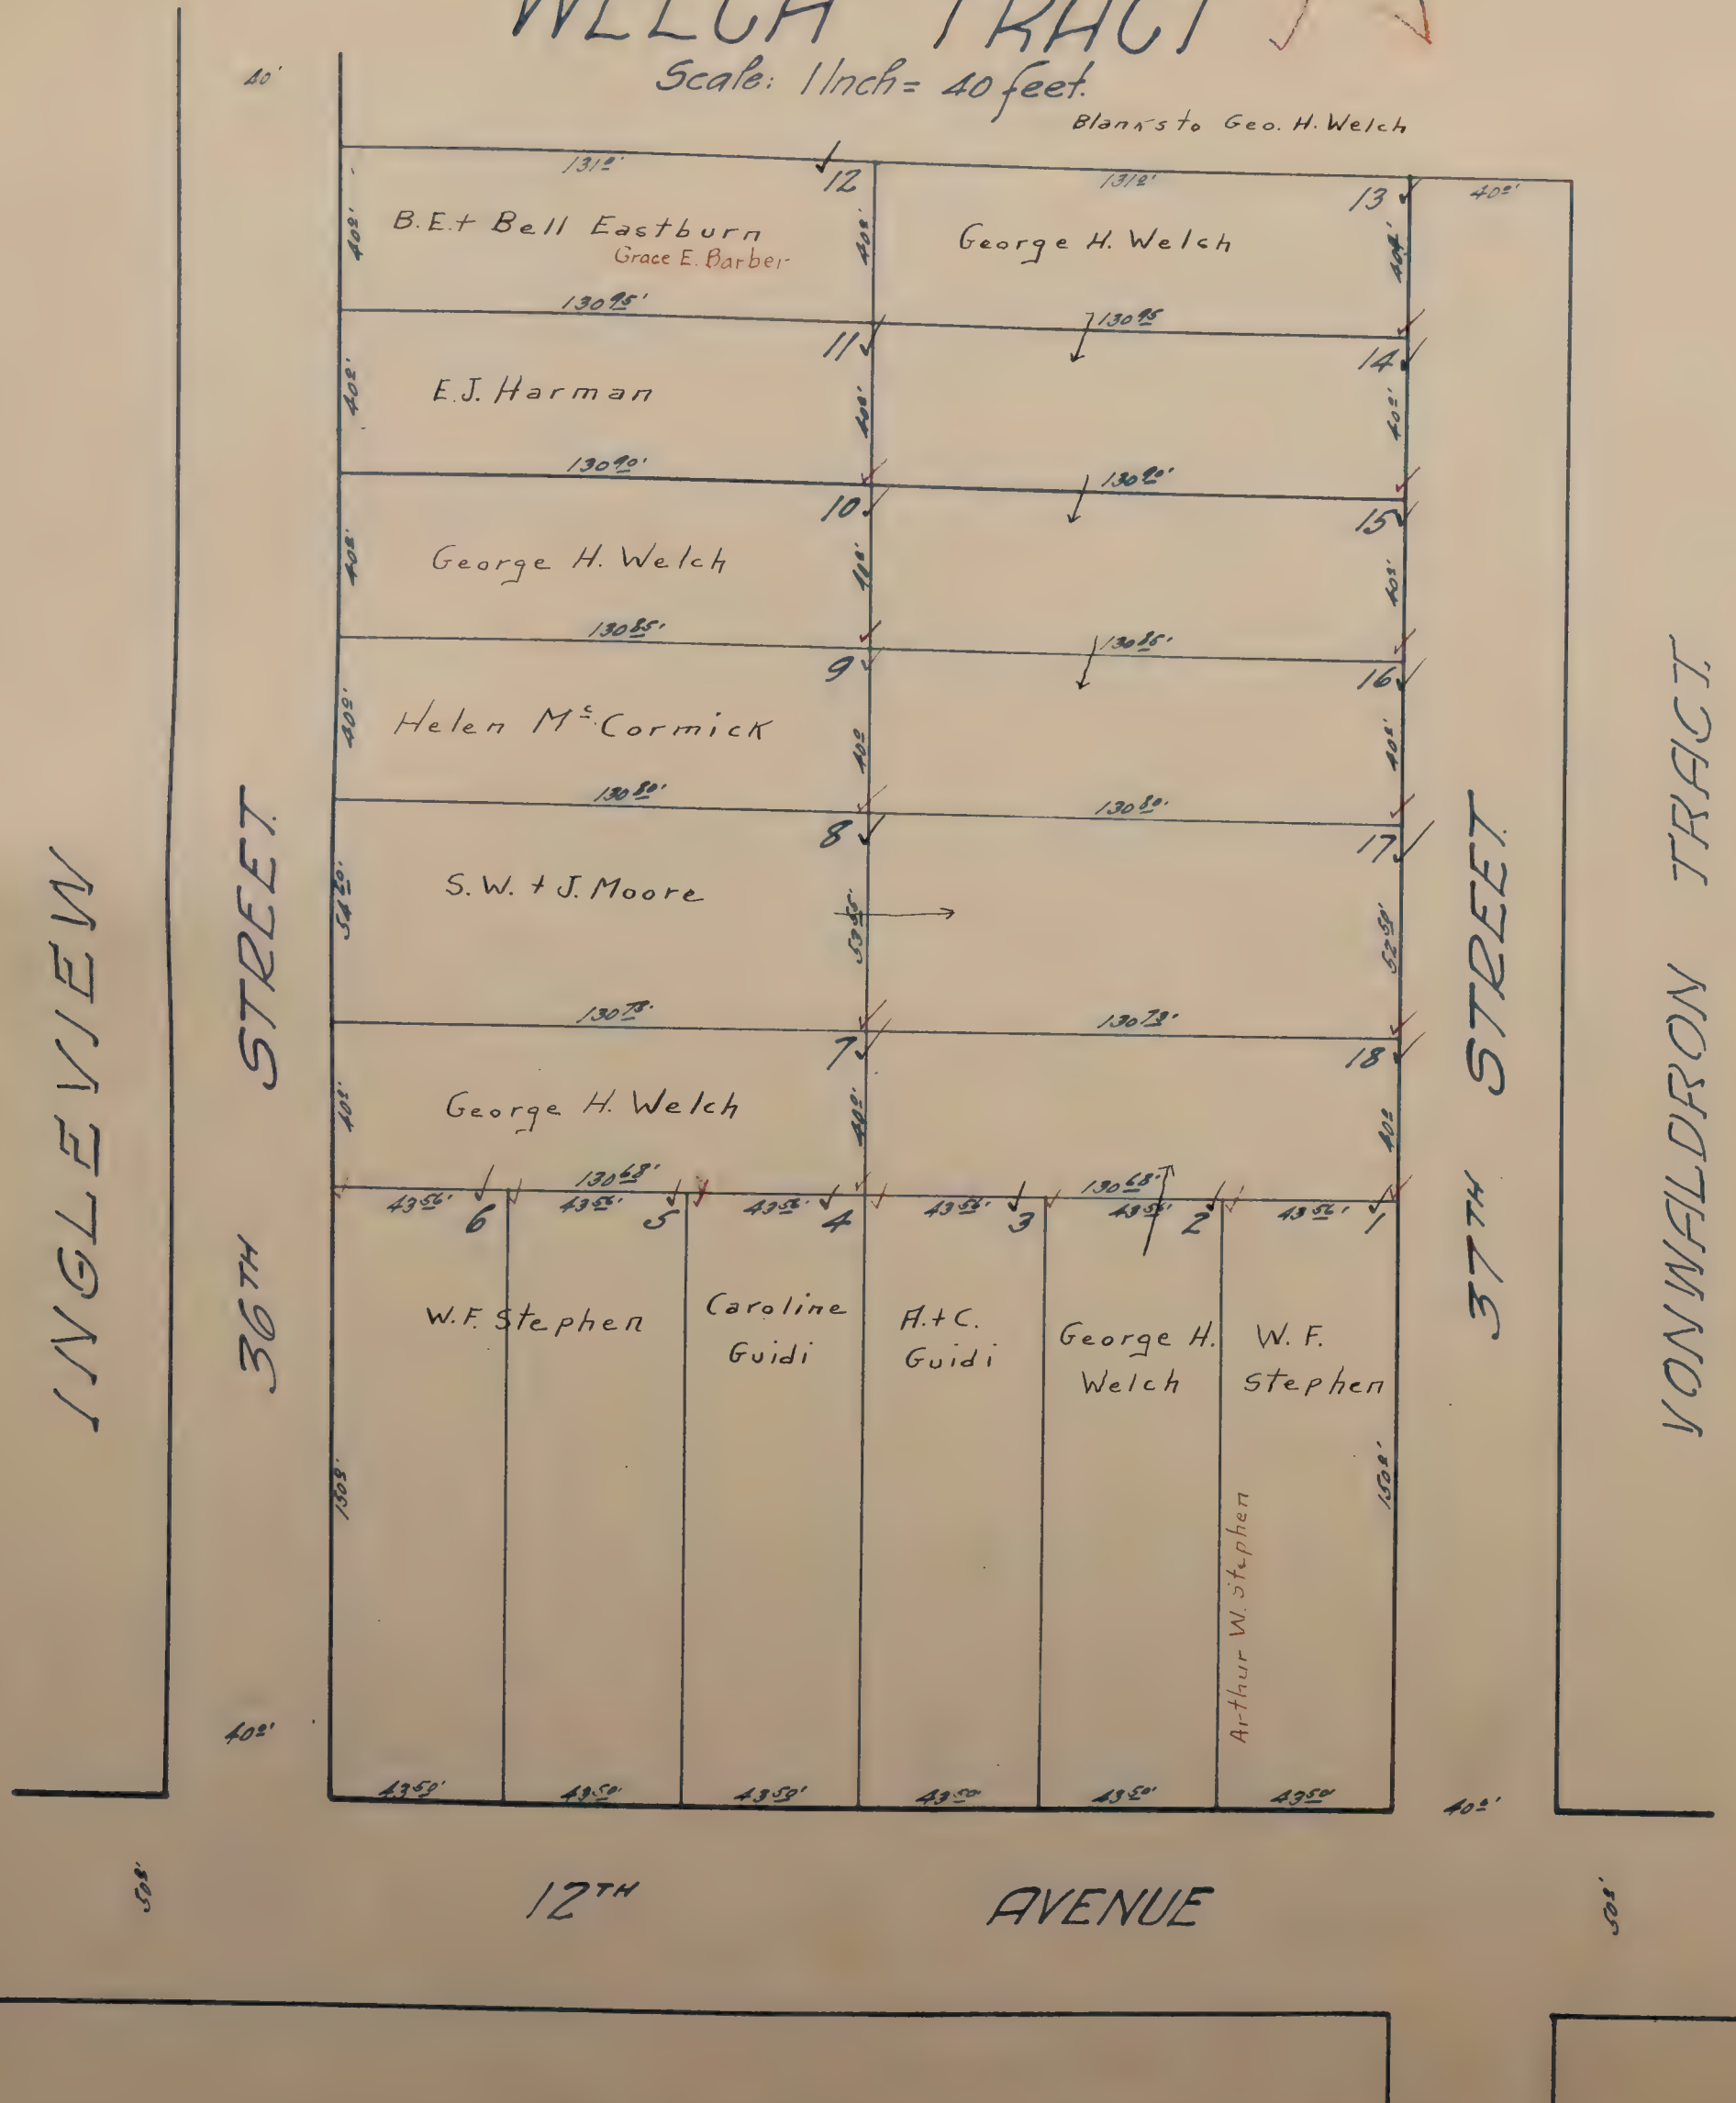 WELCH TRACT
Scale: 1 Inch = 40 feet.
Blanks to Geo. H. Welch
40'
131⁰'
12
131⁰'
13
40⁰'
40⁰'
B.E. + Bell Eastburn
Grace E. Barber
40⁰'
George H. Welch
40⁰'
130⁹⁵'
11
130⁹⁵
14
40⁰'
E.J. Harman
40⁰'
40⁰'
130⁹⁰'
10
130⁹⁰'
15
40⁰'
George H. Welch
40⁰'
40⁰'
130⁸⁵'
9
130⁸⁵'
16
40⁰'
Helen Mᶜ Cormick
40⁰
40⁰'
130⁸⁰'
8
130⁸⁰'
17
54²⁰'
S.W. + J. Moore
53⁵⁵'
52⁵⁹'
130⁷³'
7
130⁷³'
18
40⁰'
George H. Welch
40⁰'
40⁰
130⁶⁸'
130⁶⁸'
43⁵⁶'
6
43⁵⁶'
5
43⁵⁶'
4
43⁵⁶'
3
43⁵⁶'
2
43⁵⁶'
1
W.F. Stephen
Caroline
Guidi
A. + C.
Guidi
George H.
Welch
W. F.
Stephen
Arthur W. Stephen
150⁰'
150⁰'
43⁵⁰'
43⁵⁰'
43⁵⁰'
43⁵⁰'
43⁵⁰'
43⁵⁰'
40⁰'
40⁰'
INGLEVIEW
36TH STREET
37TH STREET
VONWALDRON TRACT.
50⁰'
12TH AVENUE
50⁰'